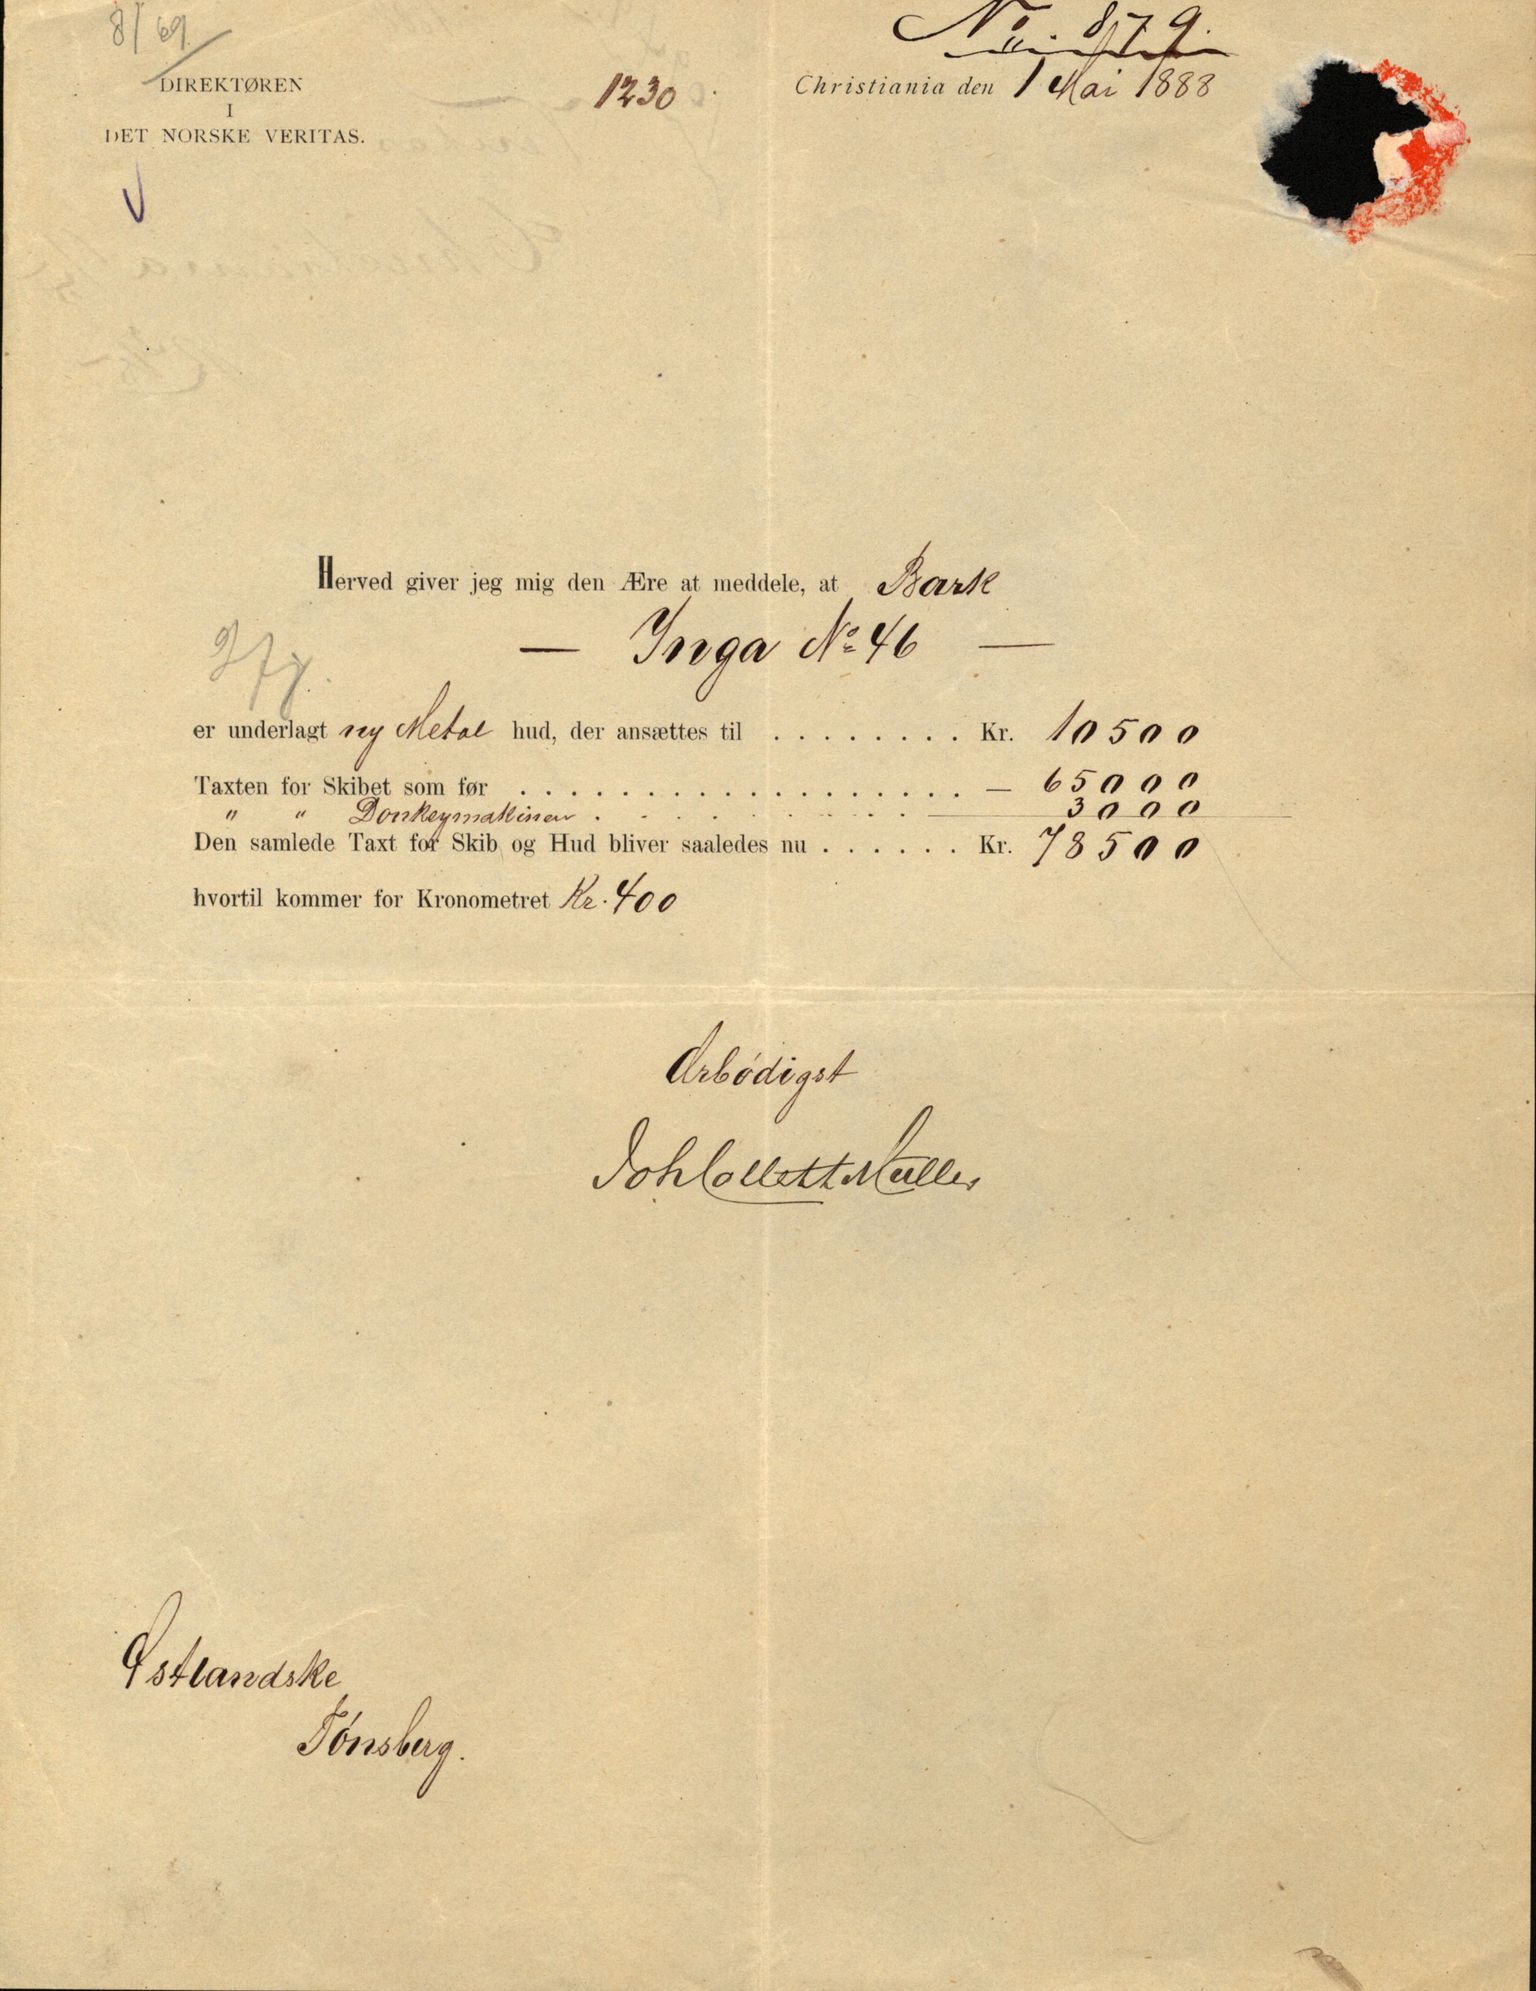 8/69
No. 879.
DIREKTØREN
I
DET NORSKE VERITAS.
1230
Christiania den 1 Mai 1888
Herved giver jeg mig den Ære at meddele, at Bark
— Inga No 46 —
er underlagt ny Metal hud, der ansættes til . . . . . . . . Kr. 10500
Taxten for Skibet som før . . . . . . . . . . . . . . . . . . — 65000
" " Donkeymakinen . . . . . . . . 3000
Den samlede Taxt for Skib og Hud bliver saaledes nu . . . . . . Kr. 78500
hvortil kommer for Kronometret Kr. 400
Ærbødigst
Joh Collett Müller
Østlandske
Tønsberg.